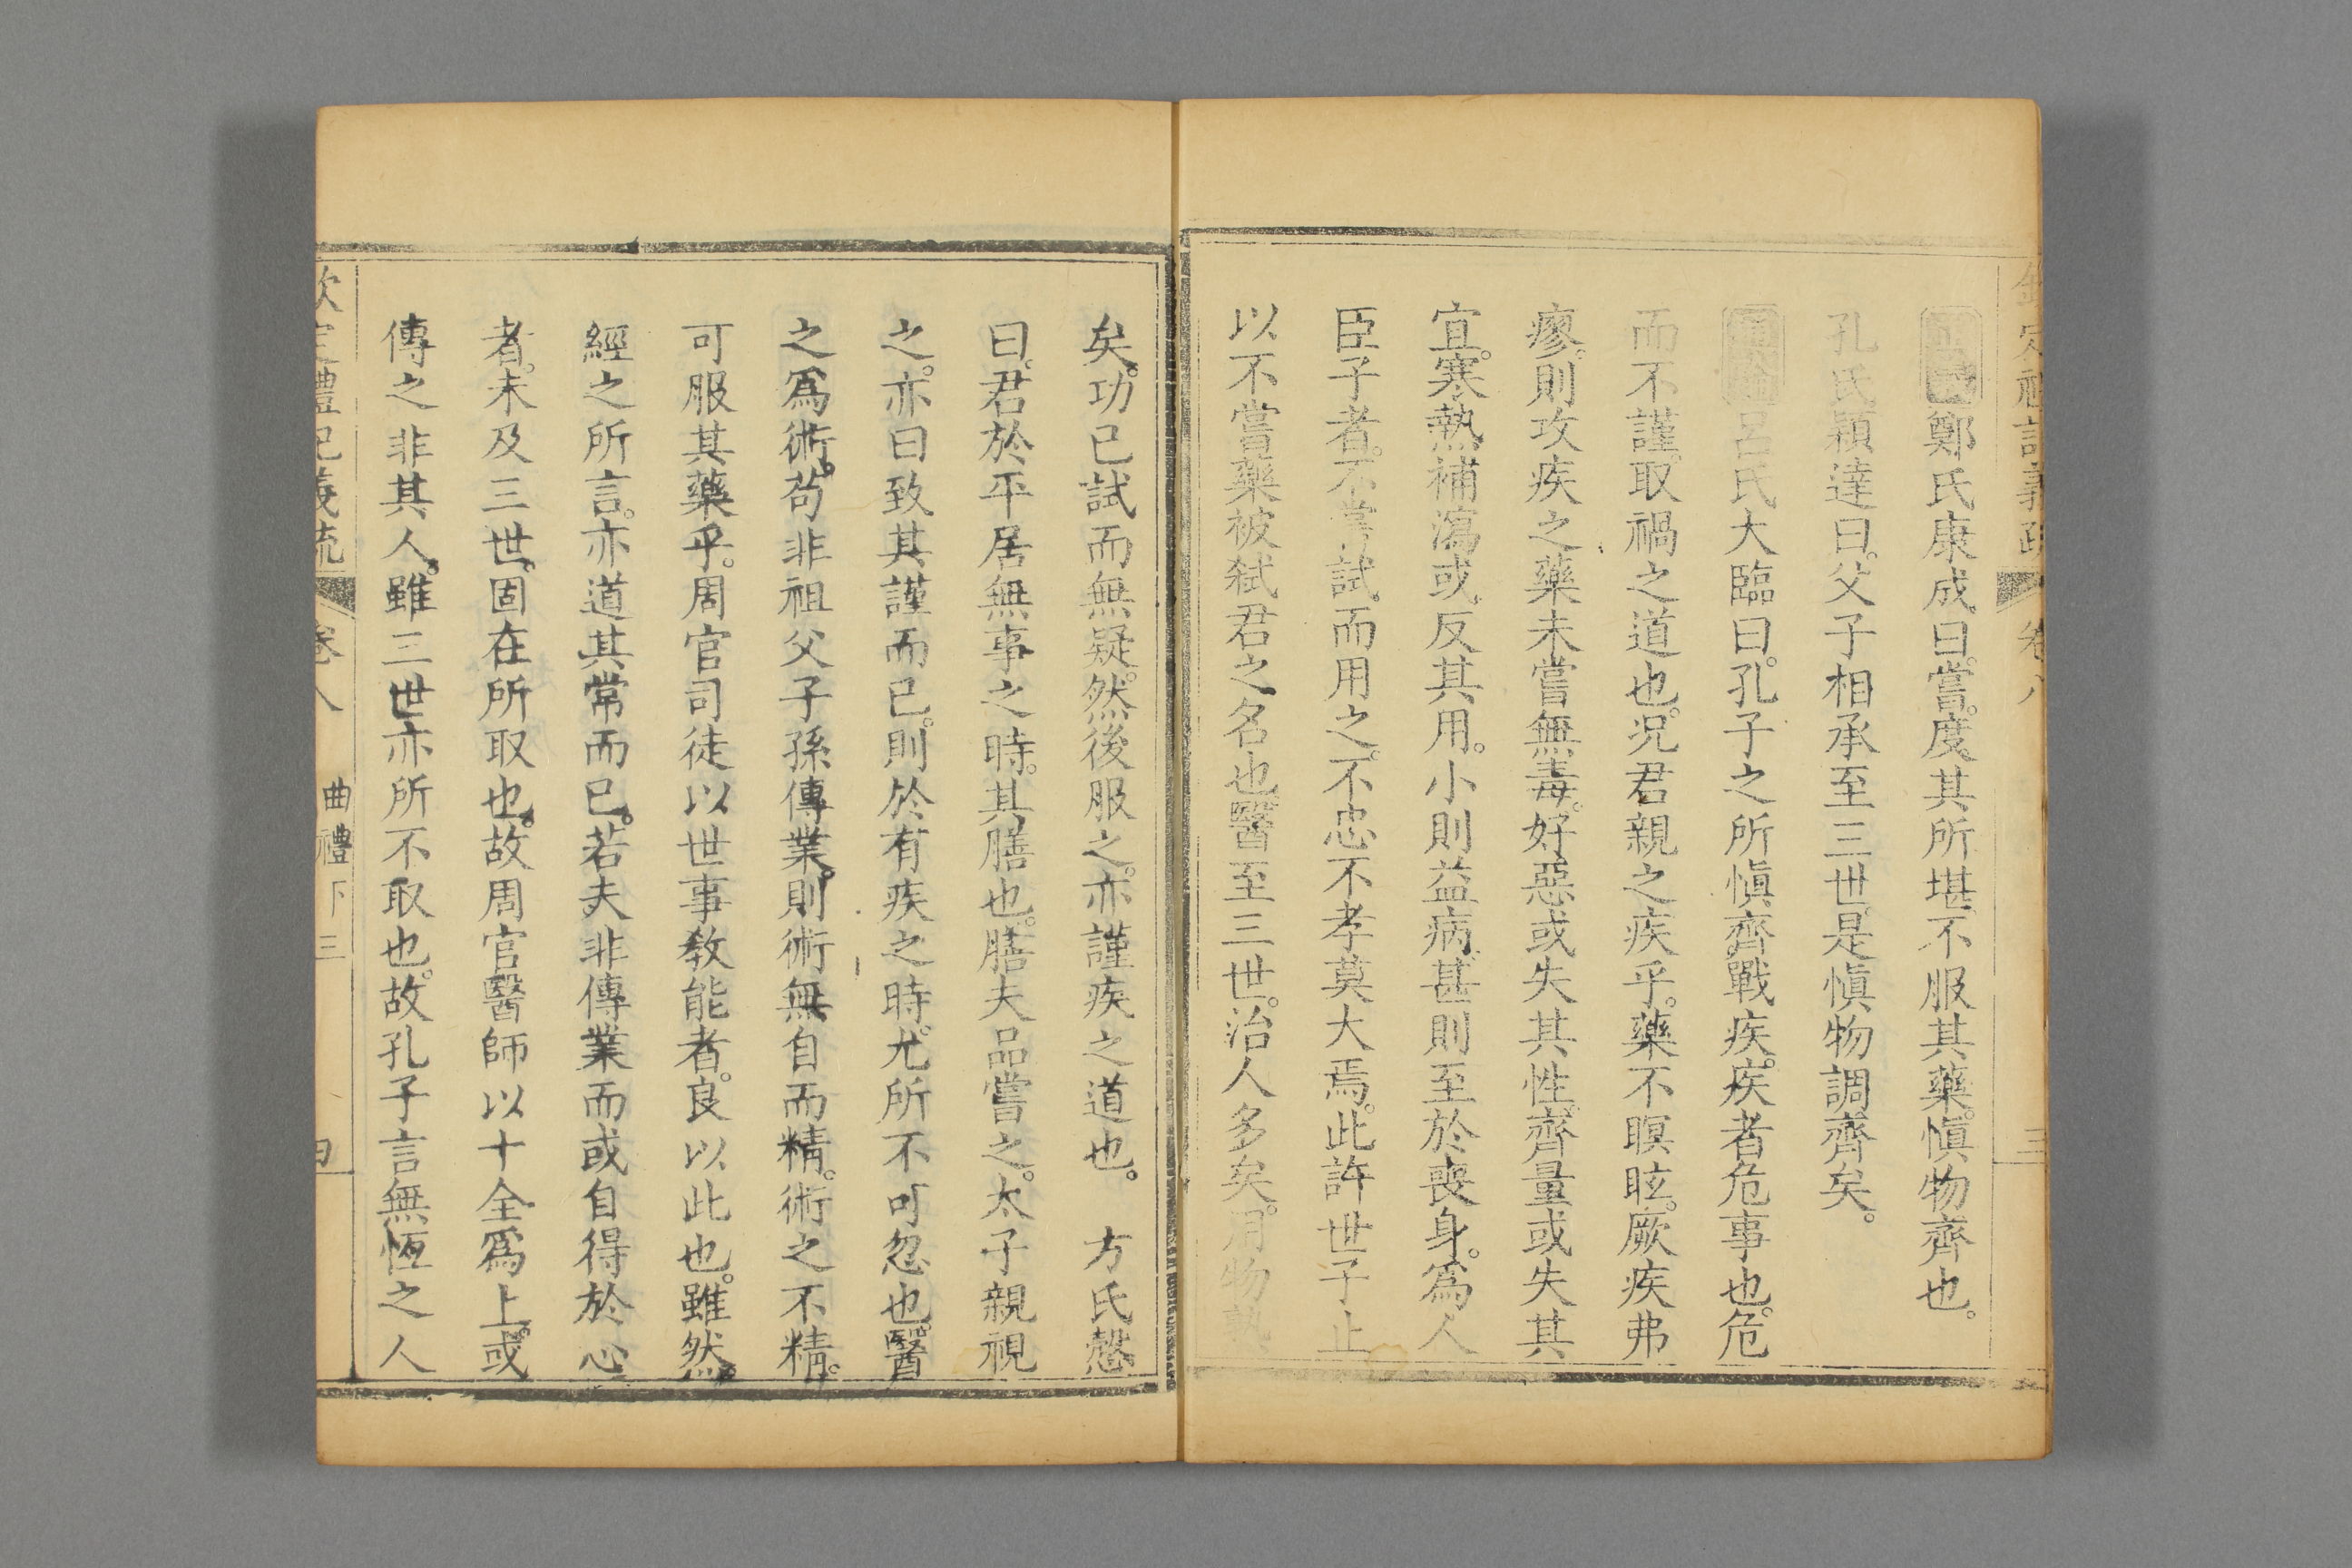 正義鄭氏康成曰嘗度其所堪不服其藥慎物齊也
孔氏穎達曰父子相承至三世是慎物調齊矣
呂氏大臨曰孔子之所慎齊戰疾疾者危事也危
而不謹取禍之道也況君親之疾乎藥不瞑眩厥疾弗
瘳則攻疾之藥未嘗無毒好惡或失其性齊量或失其
宜寒熱補瀉或反其用小則益病甚則至於喪身為人
臣子者不嘗試而用之不忠不孝莫大焉此許世子止
以不嘗藥被弒君之名也醫至三世治人多矣用物熟
矣功已試而無疑然後服之亦謹疾之道也 方氏慤
曰君於平居無事之時其膳也膳夫品嘗之太子親視
之亦曰致其謹而已則於有疾之時尤所不可忽也醫
之爲術苟非祖父子孫傳業則術無自而精術之不精
可服其藥乎周官司徒以世事教能者良以此也雖然
經之所言亦道其常而已若夫非傳業而或自得於心
者未及三世固在所取也故周官醫師以十全爲上或
傳之非其人雖三世亦所不取也故孔子言無恆之人
欽定禮記義疏 卷八 曲禮下三